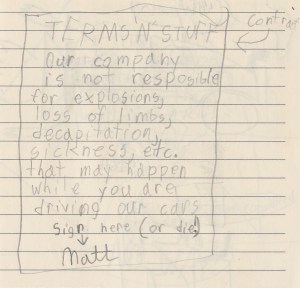 TERMS'N'STUFF
Our company
is not resposible
for explosions,
loss of limbs,
decapitation,
sickness, etc.
that may happen
while you are
driving our cars
sign here (or die!)
Matt